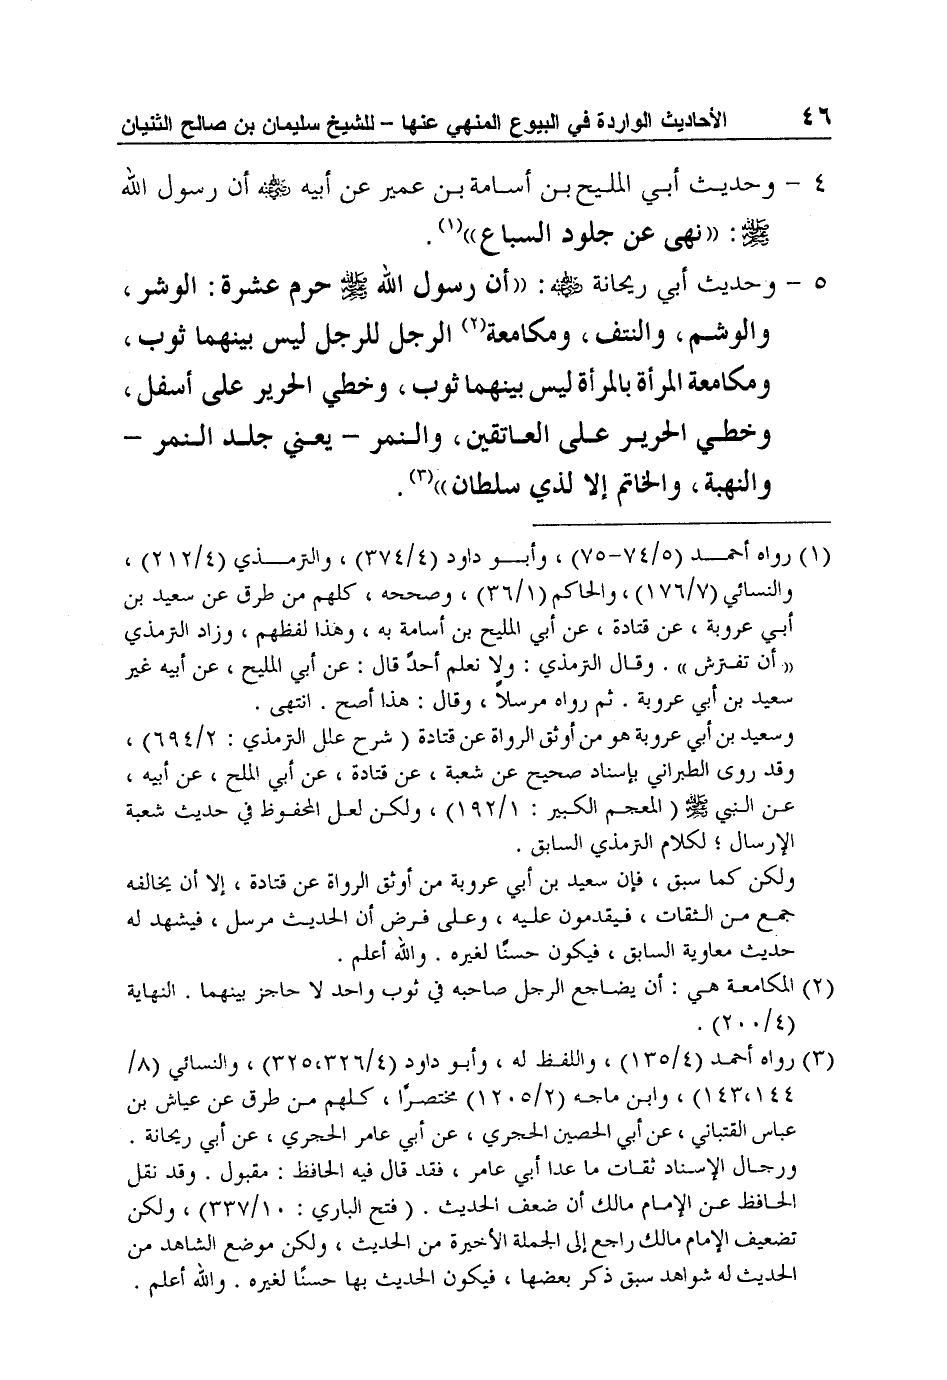 ٤٦ الأحاديث الواردة في البيوع المنهي عنها - للشيخ سليمان بن صالح الثنيان
٤ - وحديث أبي المليح بن أسامة بن عمير عن أبيه ﵁ أن رسول الله
ﷺ : «نهى عن جلود السباع»(١) .
٥ - وحديث أبي ريحانة ﵁ : «أن رسول الله ﷺ حرم عشرة : الوشر ،
والوشم ، والنتف ، ومكامعة(٢) الرجل للرجل ليس بينهما ثوب ،
ومكامعة المرأة بالمرأة ليس بينهما ثوب ، وخطي الحرير على أسفل ،
وخطي الحرير على العاتقين ، والنمر - يعني جلد النمر -
والنهبة ، والخاتم إلا لذي سلطان»(٣) .
(١) رواه أحمد (٧٤/٥-٧٥) ، وأبو داود (٣٧٤/٤) ، والترمذي (٢١٢/٤) ،
والنسائي (١٧٦/٧) ، والحاكم (٣٦/١) ، وصححه ، كلهم من طرق عن سعيد بن
أبي عروبة ، عن قتادة ، عن أبي المليح بن أسامة به ، وهذا لفظهم ، وزاد الترمذي
« أن تفترش » . وقال الترمذي : ولا نعلم أحدًا قال : عن أبي المليح ، عن أبيه غير
سعيد بن أبي عروبة . ثم رواه مرسلاً ، وقال : هذا أصح . انتهى .
وسعيد بن أبي عروبة هو من أوثق الرواة عن قتادة ( شرح علل الترمذي : ٦٩٤/٢) ،
وقد روى الطبراني بإسناد صحيح عن شعبة ، عن قتادة ، عن أبي الملح ، عن أبيه ،
عن النبي ﷺ ( المعجم الكبير : ١٩٢/١) ، ولكن لعل المحفوظ في حديث شعبة
الإرسال ؛ لكلام الترمذي السابق .
ولكن كما سبق ، فإن سعيد بن أبي عروبة من أوثق الرواة عن قتادة ، إلا أن يخالفه
جمع من الثقات ، فيقدمون عليه ، وعلى فرض أن الحديث مرسل ، فيشهد له
حديث معاوية السابق ، فيكون حسنًا لغيره . والله أعلم .
(٢) المكامعة هي : أن يضاجع الرجل صاحبه في ثوب واحد لا حاجز بينهما . النهاية
(٢٠٠/٤) .
(٣) رواه أحمد (١٣٥/٤) ، واللفظ له ، وأبو داود (٣٢٥،٣٢٦/٤) ، والنسائي (٨/
١٤٣،١٤٤) ، وابن ماجه (١٢٠٥/٢) مختصرًا ، كلهم من طرق عن عياش بن
عباس القتباني ، عن أبي الحصين الحجري ، عن أبي عامر الحجري ، عن أبي ريحانة .
ورجال الإسناد ثقات ما عدا أبي عامر ، فقد قال فيه الحافظ : مقبول . وقد نقل
الحافظ عن الإمام مالك أن ضعف الحديث . ( فتح الباري : ٣٣٧/١٠) ، ولكن
تضعيف الإمام مالك راجع إلى الجملة الأخيرة من الحديث ، ولكن موضع الشاهد من
الحديث له شواهد سبق ذكر بعضها ، فيكون الحديث بها حسنًا لغيره . والله أعلم .